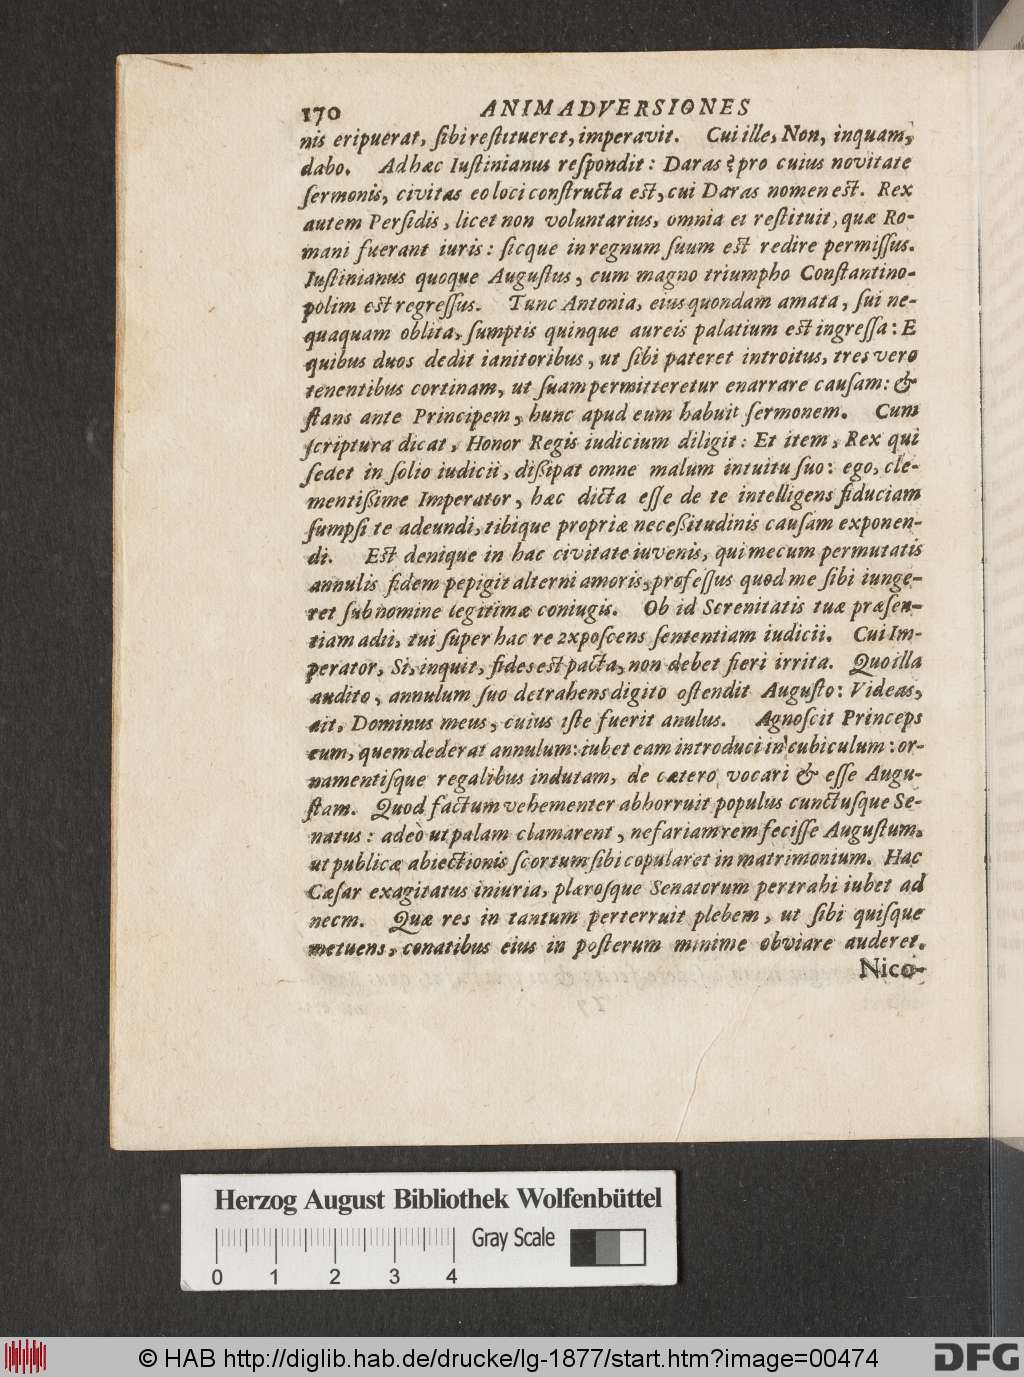 170 ANIMADVERSIONES
nis eripuerat, ſibi reſtitueret, imperavit. Cui ille, Non, inquam,
dabo. Ad hæc Iuſtinianus reſpondit: Daras ꝛ pro cuius novitate
ſermonis, civitas eo loci conſtructa eſt, cui Daras nomen eſt. Rex
autem Perſidis, licet non voluntarius, omnia ei reſtituit, quæ Ro-
mani fuerant iuris: ſicque in regnum ſuum eſt redire permiſſus.
Iuſtinianus quoque Auguſtus, cum magno triumpho Conſtantino-
polim eſt regreſſus. Tunc Antonia, eius quondam amata, ſui ne-
quaquam oblita, ſumptis quinque aureis palatium eſt ingreſſa: E
quibus duos dedit ianitoribus, ut ſibi pateret introitus, tres vero
tenentibus cortinam, ut ſuam permitteretur enarrare cauſam: &
ſtans ante Principem, hunc apud eum habuit ſermonem. Cum
ſcriptura dicat, Honor Regis iudicium diligit: Et item, Rex qui
ſedet in ſolio iudicii, dißipat omne malum intuitu ſuo: ego, cle-
mentißime Imperator, hæc dicta eſſe de te intelligens fiduciam
ſumpſi te adeundi, tibique propriæ neceßitudinis cauſam exponen-
di. Eſt denique in hac civitate iuvenis, qui mecum permutatis
annulis fidem pepigit alterni amoris, profeſſus quod me ſibi iunge-
ret ſub nomine legitimæ coniugis. Ob id Serenitatis tuæ præſen-
tiam adii, tui ſuper hac re expoſcens ſententiam iudicii. Cui Im-
perator, Si, inquit, fides eſt pacta, non debet fieri irrita. Quo illa
audito, annulum ſuo detrahens digito oſtendit Auguſto: Videas,
ait, Dominus meus, cuius iſte fuerit anulus. Agnoſcit Princeps
eum, quem dederat annulum: iubet eam introduci in cubiculum: or-
namentiſque regalibus indutam, de cætero vocari & eſſe Augu-
ſtam. Quod factum vehementer abhorruit populus cunctuſque Se-
natus: adeò ut palam clamarent, nefariam rem feciſſe Auguſtum,
ut publicæ abiectionis ſcortum ſibi copularet in matrimonium. Hac
Cæſar exagitatus iniuria, plæroſque Senatorum pertrahi iubet ad
necm. Quæ res in tantum perterruit plebem, ut ſibi quiſque
metuens, conatibus eius in poſterum minime obviare auderet.
Nico-
Herzog August Bibliothek Wolfenbüttel
Gray Scale
0 1 2 3 4
© HAB http://diglib.hab.de/drucke/lg-1877/start.htm?image=00474
DFG